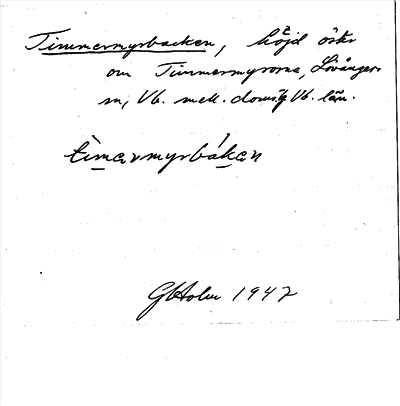 Timmermyrbacken, höjd öster
om Timmermyrorna, Lövångers
sn, Vb. mell. doms. Vb. län.
tìmermyrbáken
GHolm 1947